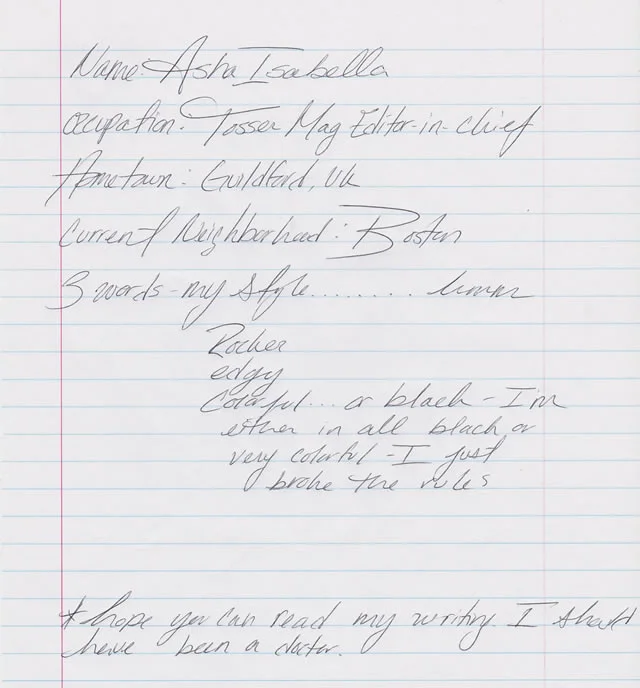 Name: Asha Isabella
Occupation: Tosser Mag Editor-in-chief
Hometown: Guildford, UK
Current Neighborhood: Boston
3 words - my style........ hmmm
Rocker
edgy
Colorful... or black - I'm
either in all black or
very colorful - I just
broke the rules
* hope you can read my writing. I should
have been a doctor.